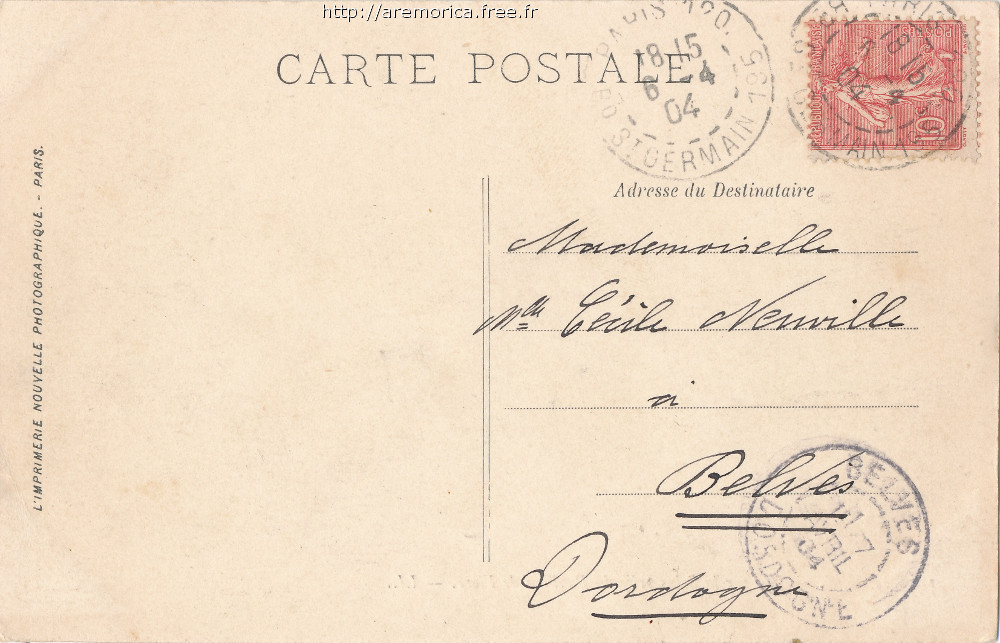 http://aremorica.free.fr
CARTE POSTALE
PARIS 120
18 15
6 -4
04
BD ST GERMAIN 185
PARIS
18 15
6 -4
04
MAIN
RÉPUBLIQUE FRANÇAISE
POSTES
10
Adresse du Destinataire
Mademoiselle
Mlle Cécile Neuville
à
Belvès
Dordogne
BELVES
11
7
AVRIL
04
DORDOGNE
L'IMPRIMERIE NOUVELLE PHOTOGRAPHIQUE. - PARIS.